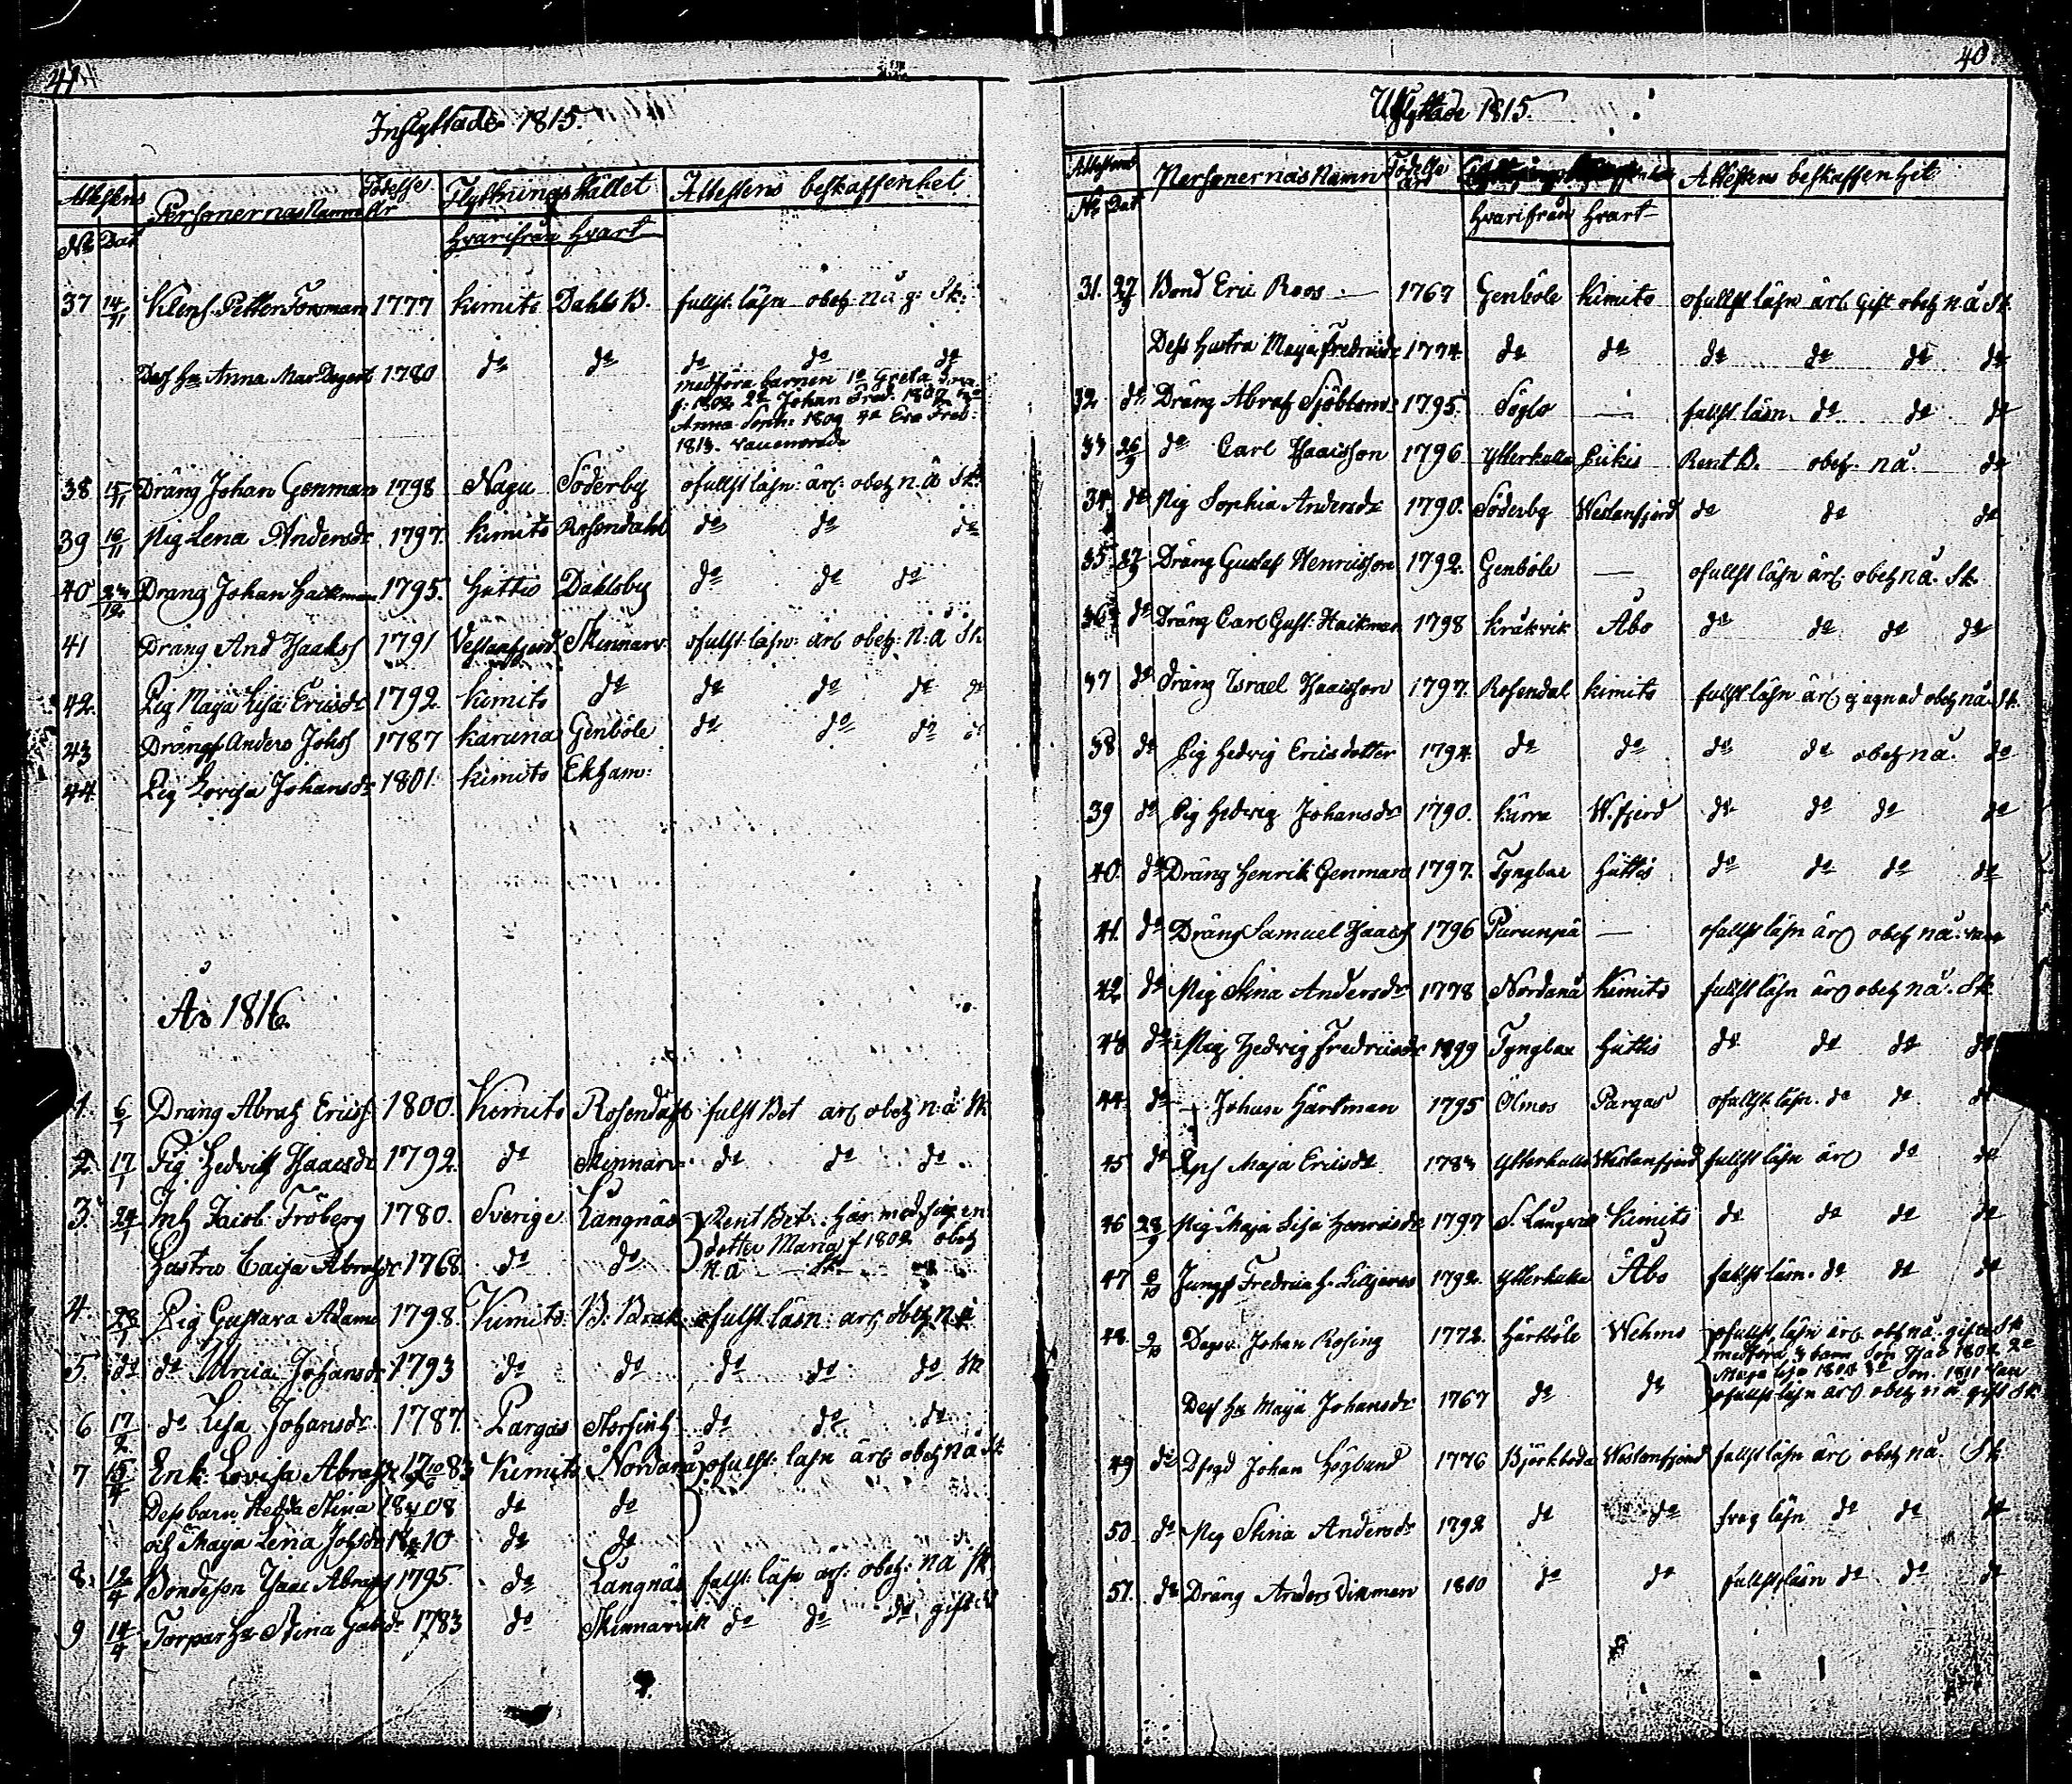 41
Inflyttade 1815.
Attestens Personernas Namn Födelse År Flyttningsstället Attestens beskaffenhet
No Dat hvarifrån hvart
37 14/11 Klens. Petter Forsman 1777 Kimito Dahlsb. fullst: läsn obeh: na. g: Sk:
Dess Hu Anna Mar Degert 1780 do do do do do
medföra barnen 1o Greta
f: 1802 2o Johan Fred: 1807
Anna Soph: 1809 4o Eva Fred:
1813. vaccinerade
38 15/11 Dräng Johan Genman 1798 Nagu Söderby ofullst läsn: ärl: obeh n.a Sk:
39 16/11 Pig Lena Andersdr 1797. Kimito Rosendahl do do do
40 23/12 Dräng Johan Hackman 1795. Hittis Dahlsby do do do
41 Dräng And Isaaks 1791 Vestanfjerd Skinnarv. ofullst läsn: ärl obeh: n.a Sk
42. Pig Maja Lisa Ericsdr 1792. Kimito do do do do do
43 Drängs Anders Johss 1787 Karuna Genböle do do do do
44. Pig Lovisa Johansdr 1801. Kimito Ekhamn:
År 1816.
1. 6/1 Dräng Abrah Ericss. 1800. Kimito Rosendahl fullst Bet ärl obeh n.a Sk
2. 17/1 Pig Hedvig Isaacsdr 1792. do Skinnarv. do do do
3. 24/1 Inh Jacob Fröberg 1780. Sverige Långnäs Rent Bet. Har med sig en
dotter Maria f 1802 obeh
Hustru Caisa Abrahsdr 1768. do do n.a Sk
4. 28/1 Pig Gustava Adamsd 1798. Kimito. B. Brok ofullst läsn: ärl obeh n.a
5. do do Ulrica Johansdr 1793 do do do do do Sk
6 17/2 do Lisa Johansdr. 1787. Pargas Storfinh do do do
7 15/4 Enk. Lovisa Abrahsdr 1783 Kimito Nordanå ofullst: läsn ärl: obeh n.a Sk
Dess barn Hedda Stina 1808 do do
och Maja Lena Johsdr 1810 do do
8. 12/4 Bondeson Isaac Abrahss 1795. do Långnäs fullst: läsn ärl: obeh: n.a Sk
9 14/4 Torpar Hu Stina Gabrdr 1783 do Skinnarvik do do do gift do
40
Utflyttade 1815.
Attestens Personernas Namn Födelse År Attestens beskaffenhet
No Dat hvarifrån hvart
31. 27/9 Bond Eric Roos 1767 Genböle Kimito ofullst läsn ärl Gift obeh n.a Sk.
Dess Hustru Maja Fredricsdr 1774. do do do do do do
32 do Dräng Abrah Sjöblom 1795. Söglo — fullst läsn. do do do
33 26/9 do Carl Isaacsson 1796 Ytterkulla Bikis Rent B. obeh. n.a. do
34. do Pig Sophia Andersdr 1790. Söderby Westanfjerd do do do
35 27/9 Dräng Gustaf Henricsson 1792. Genböle — ofullst läsn ärl. obeh n.a. Sk.
36 do Dräng Carl Gust. Hackman 1798 Kråkvik Åbo do do do do
37 do Dräng Israel Isaacsson 1797. Rosendal Kimito fullst läsn ärl ej egnad obeh n.a. Sk.
38 do Pig Hedvig Ericsdotter 1794. do do do do obeh n.a. do
39 do Pig Hedvig Johansdr 1790. Kärra W.fjerd do do do do
40. do Dräng Henrik Genman 1797. Tynglax Hittis do do do do
41. do Dräng Samuel Isaacs 1796 Purunpä — ofullst läsn ärl obeh n.a.
42 do Pig Stina Andersdr 1778 Nordanå Kimito fullst läsn ärl obeh n.a. Sk
43 do Pig Hedvig Fredricsdr 1799 Tynglax Hittis do do do do
44. do Johan Hartman 1795 Ölmos Pargas ofullst. läsn. do do do
45 do Maja Ericsdr 1783 Ytterkulla Westanfjerd fullst läsn ärl do do
46 28/9 Pig Maja Lisa Henricsdr 1797 S. Långvik Kimito do do do do
47 6/10 Jungf Fredrica H. Liljeros 1792. Ytterkulla Åbo fullst läsn. do do do
48. 9/10 Dagsv. Johan Rosing 1772. Hertböle Wehmo ofullst läsn ärl obh n.a. gift Sk
medföra 3 barn Son Isac 1802. 2o
Maja Lisa 1808 3o Son. 1811 Vac
Dess Hu Maja Johansdr 1767 do do ofullst läsn ärl obeh n.a gift Sk
49 do Johan Höglund 1776 Björkboda Westanfjerd fullst läsn ärl obeh n.a. Sk.
50 do Pig Stina Andersdr 1792 do do läsn do do do
51. do Dräng Anders Vikman 1800 do do fullst läsn do do do